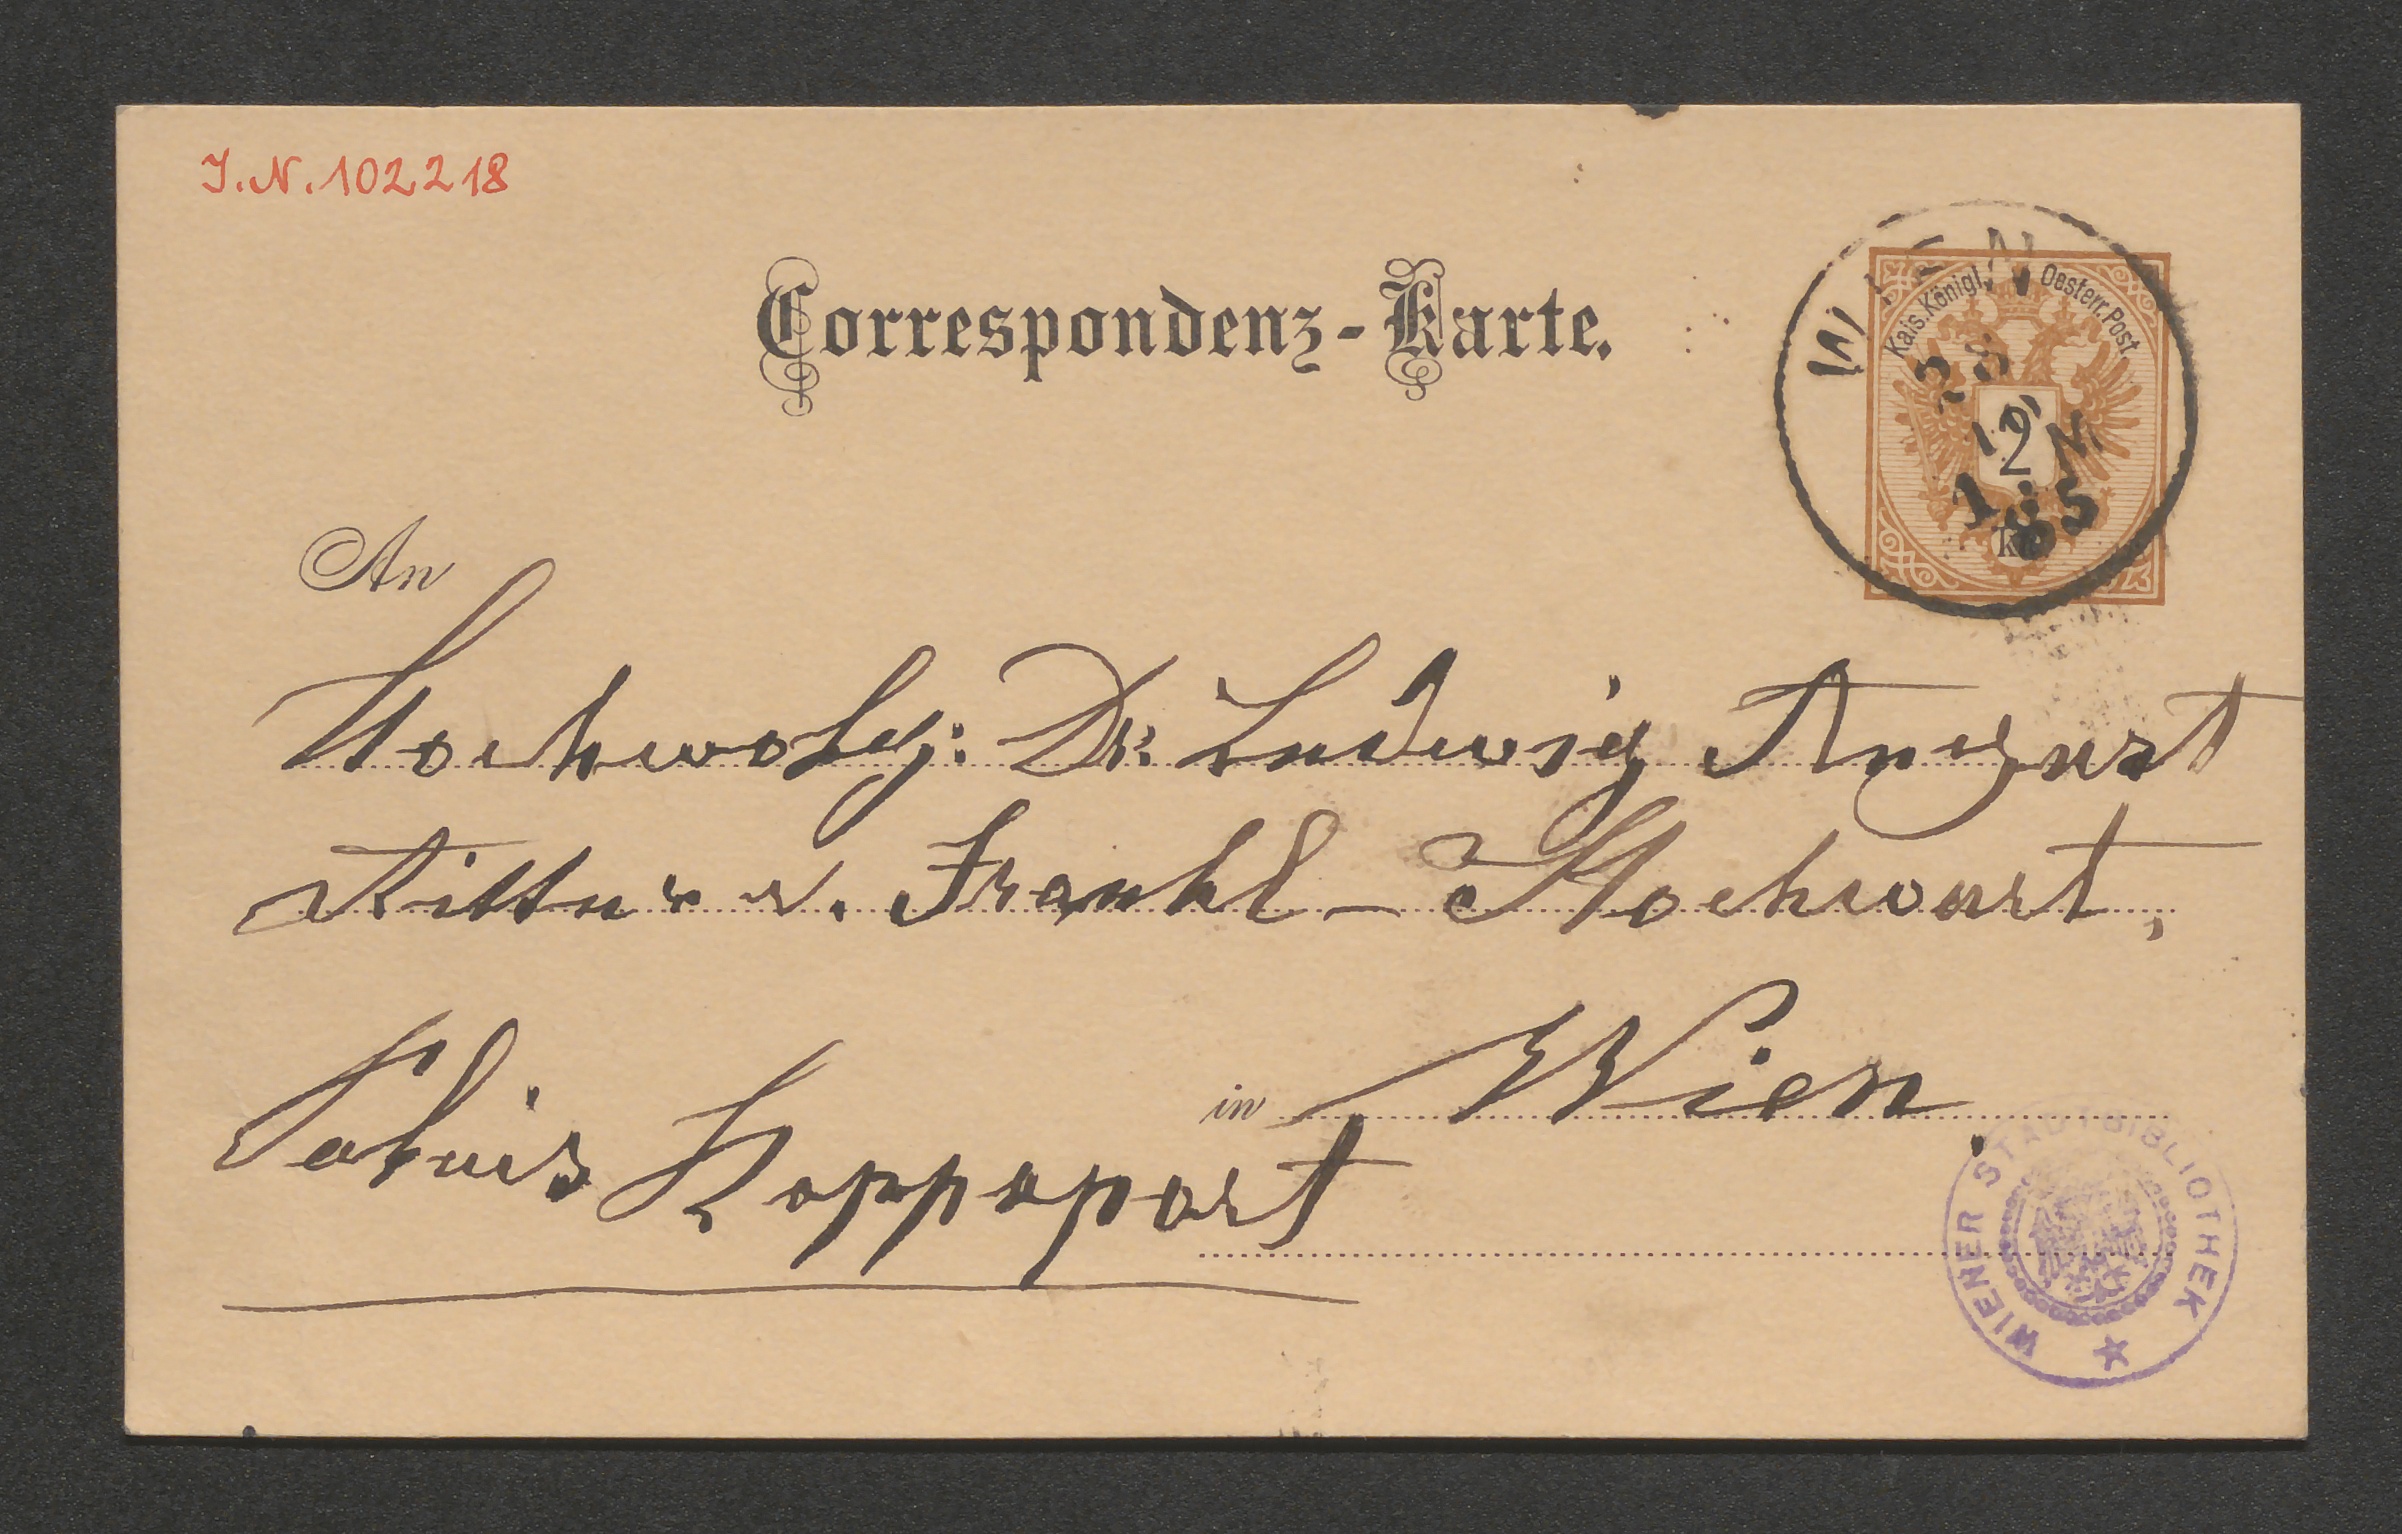 J.N.102218
Correspondenz-Karte.
Kais. Königl. Oesterr. Post.
WIEN
2
kr.
85
An
Hochwolg: Dr. Ludwig August
Ritter v. Frankl-Hochwart,
in Wien.
Rappaport
WIENER STADTBIBLIOTHEK